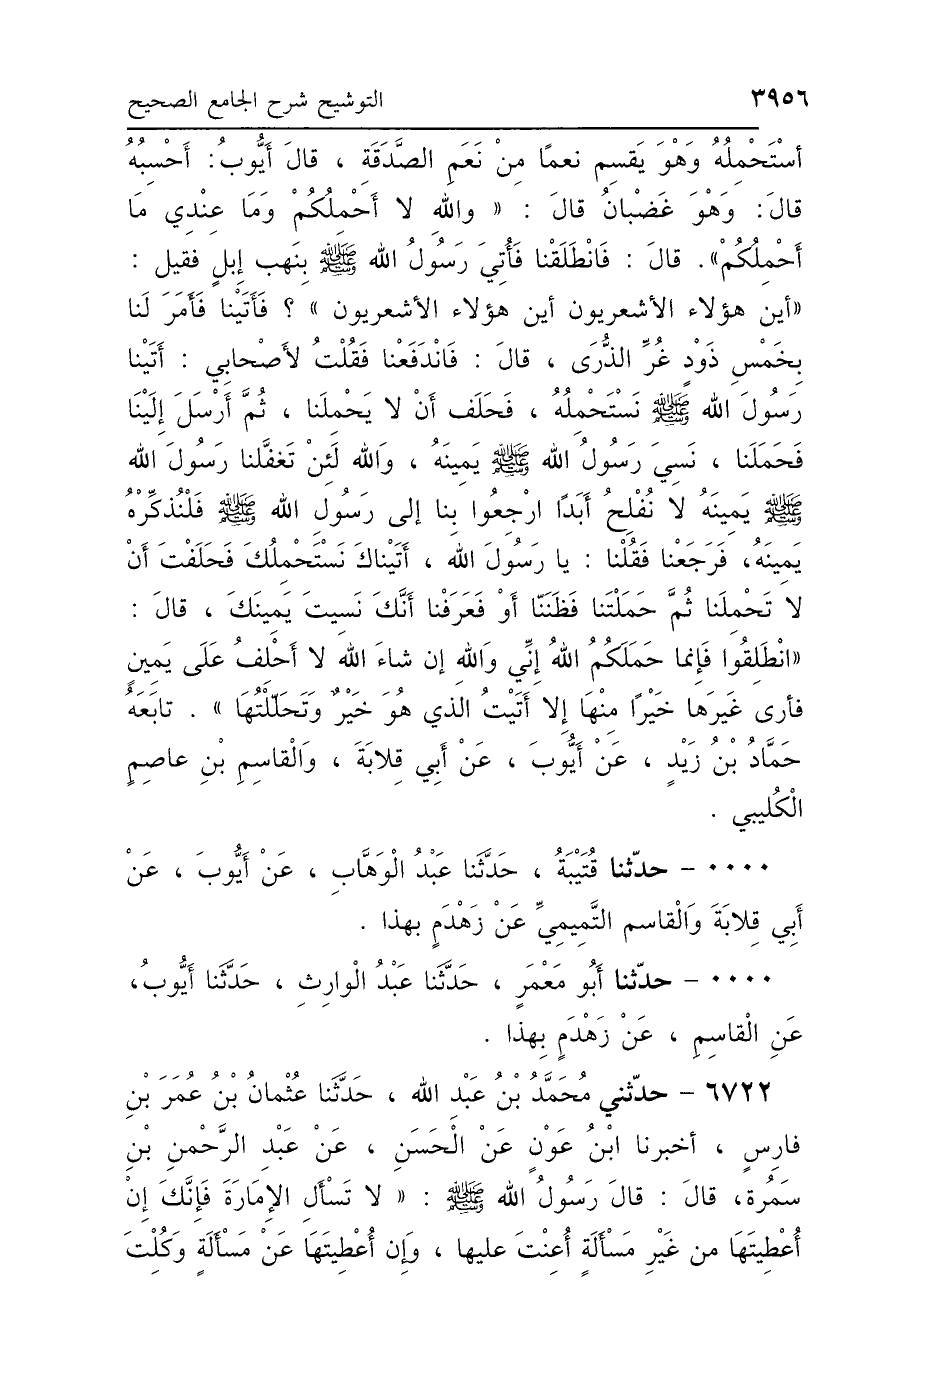 ٣٩٥٦ التوشيح شرح الجامع الصحيح
أسْتَحْمِلُهُ وَهْوَ يَقسم نعمًا مِنْ نَعَمِ الصَّدَقَةِ ، قالَ أَيُّوبُ: أَحْسِبُهُ
قالَ: وَهْوَ غَضْبانُ قالَ : « واللهِ لا أَحْمِلُكُمْ وَمَا عِنْدِي مَا
أَحْمِلُكُمْ». قالَ : فَانْطَلَقْنا فَأُتِيَ رَسُولُ الله ﷺ بِنَهب إبلٍ فقيل :
«أين هؤلاء الأشعريون أين هؤلاء الأشعريون » ؟ فَأَتَيْنا فَأَمَرَ لَنا
بِخَمْسِ ذَوْدٍ غُرِّ الذُّرَى ، قالَ : فَانْدَفَعْنا فَقُلْتُ لأَصْحابي : أَتَيْنا
رَسُولَ الله ﷺ نَسْتَحْمِلُهُ ، فَحَلَف أَنْ لا يَحْمِلَنا ، ثُمَّ أَرْسَلَ إِلَيْنَا
فَحَمَلَنا ، نَسِيَ رَسُولُ الله ﷺ يَمِينَهُ ، وَالله لَئِنْ تَغفَّلنا رَسُولَ الله
ﷺ يَمِينَهُ لا نُفْلِحُ أَبَدًا ارْجِعُوا بنا إلى رَسُولِ الله ﷺ فَلْنُذكِّرْهُ
يَمِينَهُ، فَرَجَعْنا فَقُلْنا : يا رَسُولَ الله ، أَتَيْناكَ نَسْتَحْملُكَ فَحَلَفْتَ أَنْ
لا تَحْمِلَنا ثُمَّ حَمَلْتَنا فَظَنَنّا أَوْ فَعَرَفْنا أَنَّكَ نَسيتَ يَمِينَكَ ، قالَ :
«انْطَلِقُوا فَإِنما حَمَلَكُمُ اللهُ إنِّي وَاللهِ إن شاءَ الله لا أَحْلِفُ عَلَى يَمينٍ
فأرى غَيَرَها خَيْرًا مِنْهَا إلا أَتَيْتُ الذي هوَ خَيْرٌ وَتَحَلّلْتُهَا » . تابَعَهُ
حَمَّادُ بْنُ زَيْدٍ ، عَنْ أَيُّوبَ ، عَنْ أَبي قِلابَةَ ، وَالْقاسِمِ بْنِ عاصِمٍ
الْكُلَيبي .
٠٠٠٠ – حدّثنا قُتَيْبَةُ ، حَدَّثَنا عَبْدُ الْوَهَّابِ ، عَنْ أَيُّوبَ ، عَنْ
أَبِي قِلابَةَ وَالْقاسم التَّمِيمِيِّ عَنْ زَهْدَمٍ بهذا .
٠٠٠٠ – حدّثنا أَبُو مَعْمَرٍ ، حَدَّثَنا عَبْدُ الْوارِثِ ، حَدَّثَنا أَيُّوبُ،
عَنِ الْقاسِمِ ، عَنْ زَهْدَمٍ بِهذا .
٦٧٢٢ – حدّثني مُحَمَّدُ بْنُ عَبْدِ الله ، حَدَّثَنا عُثْمانُ بْنُ عُمَرَ بْنِ
فارِسٍ ، أخبرنا ابْنُ عَوْنٍ عَنْ الْحَسَنِ ، عَنْ عَبْدِ الرَّحْمنِ بْنِ
سَمُرة، قالَ : قالَ رَسُولُ الله ﷺ : « لا تَسْأَلِ الإمَارَةَ فَإنَّكَ إنْ
أُعْطِيتَهَا من غَيْرِ مَسْأَلَةٍ أُعِنْتَ عليها ، وَإن أُعْطِيتَهَا عَنْ مَسْأَلَةٍ وَكُلْتَ